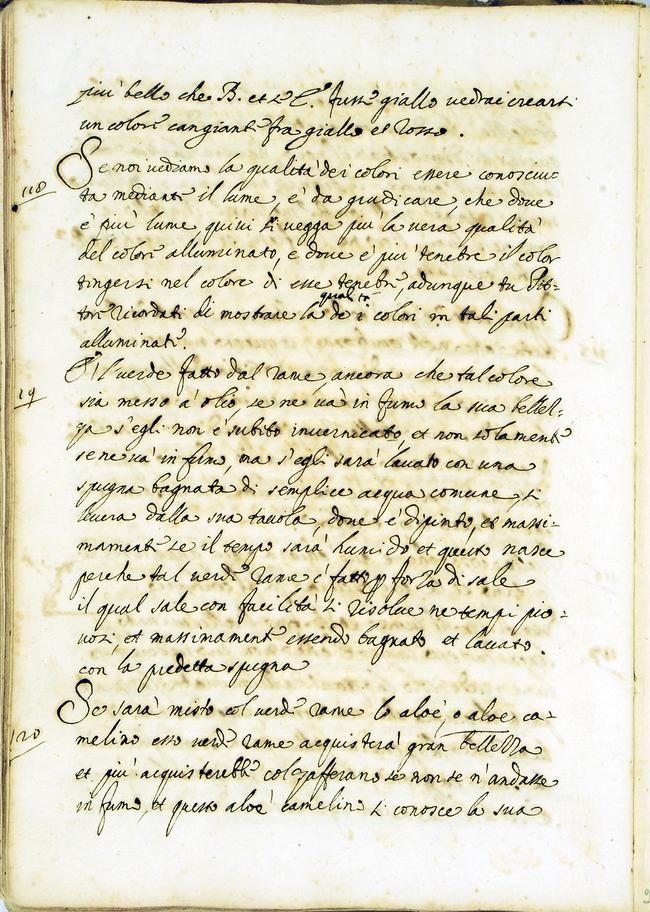 più bello che B. et se C. fusse giallo vedrai crearsi
un colore cangiante fra giallo et rosso.
118
Se noi vediamo la qualità dei colori essere conosciu-
ta mediante il lume, é da giudicare, che dove
é più lume, quivi si vegga più la vera qualità
del colore alluminato, e dove é più tenebre il color
tingersi nel colore di esse tenebre, adunque tu Pit-
tore ricordati di mostrare la qualità de i colori in tali parti
alluminate.
19
Il verde fatto dal rame ancora che tal colore
sia messo à olio, se ne và in fumo la sua bellez-
za s'egli non é subito invernicato, et non solamente
se ne và in fumo, ma s'egli sarà lavato con una
spugna bagnata di semplice acqua comune, si
levera dalla sua tavola, dove é dipinto, et massi-
mamente se il tempo sarà humido et questo nasce
perche tal verde rame é fatto p forza di sale
il qual sale con facilità si risolve ne tempi pio-
vosi, et massimamente essendo bagnato et lavato.
con la predetta spugna
120
Se sarà misto col verde rame lo aloé, o aloe ca-
melino esso verde rame acquisterà gran bellezza
et più acquisterebbe col zafferano se non se n'andasse
in fumo, et questo aloé camelino si conosce la sua